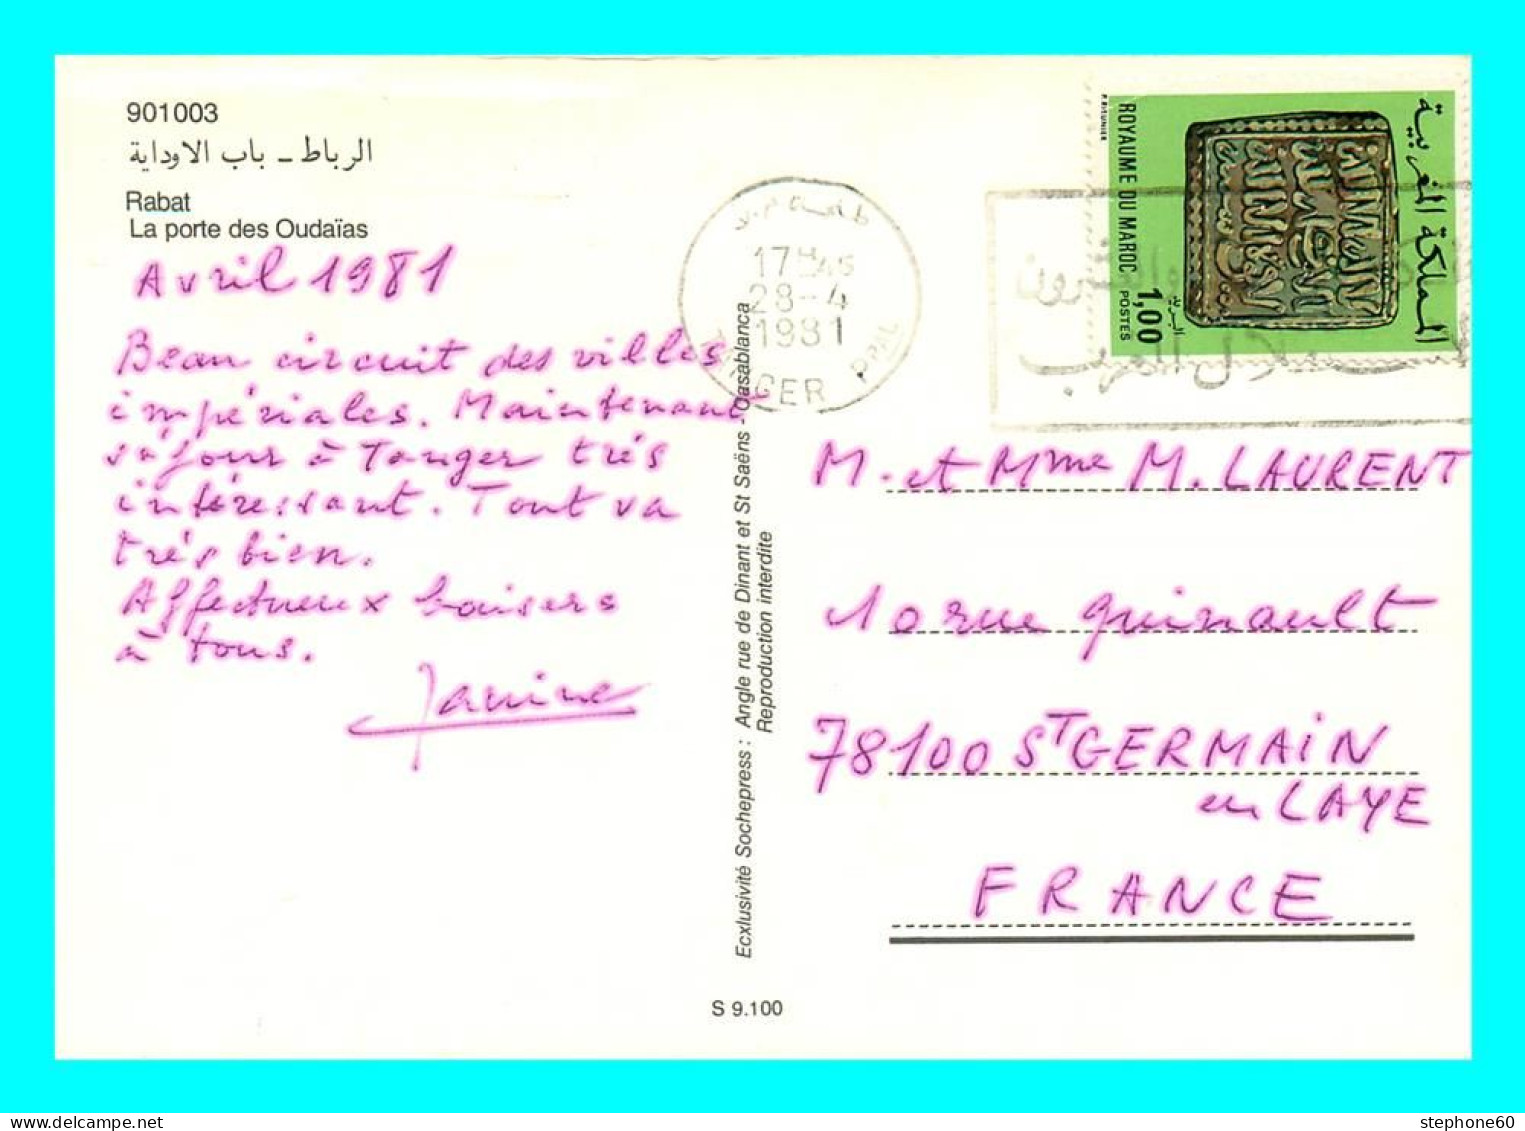 901003
الرباط – باب الاوداية
Rabat
La porte des Oudaïas
Avril 1981
Beau circuit des villes
impériales. Maintenant
séjour à Tanger très
intéressant. Tout va
très bien.
Affectueux baisers
à tous.
Janine
Ecxlusivité Sochepress : Angle rue de Dinant et St Saëns - Casablanca
Reproduction interdite
S 9.100
17H45
28-4
1981
TANGER PPAL
المملكة المغربية
ROYAUME DU MAROC
1,00
POSTES
البريد
M. et Mme M. LAURENT
10 rue Quinault
78100 ST GERMAIN
en LAYE
FRANCE
stephone60